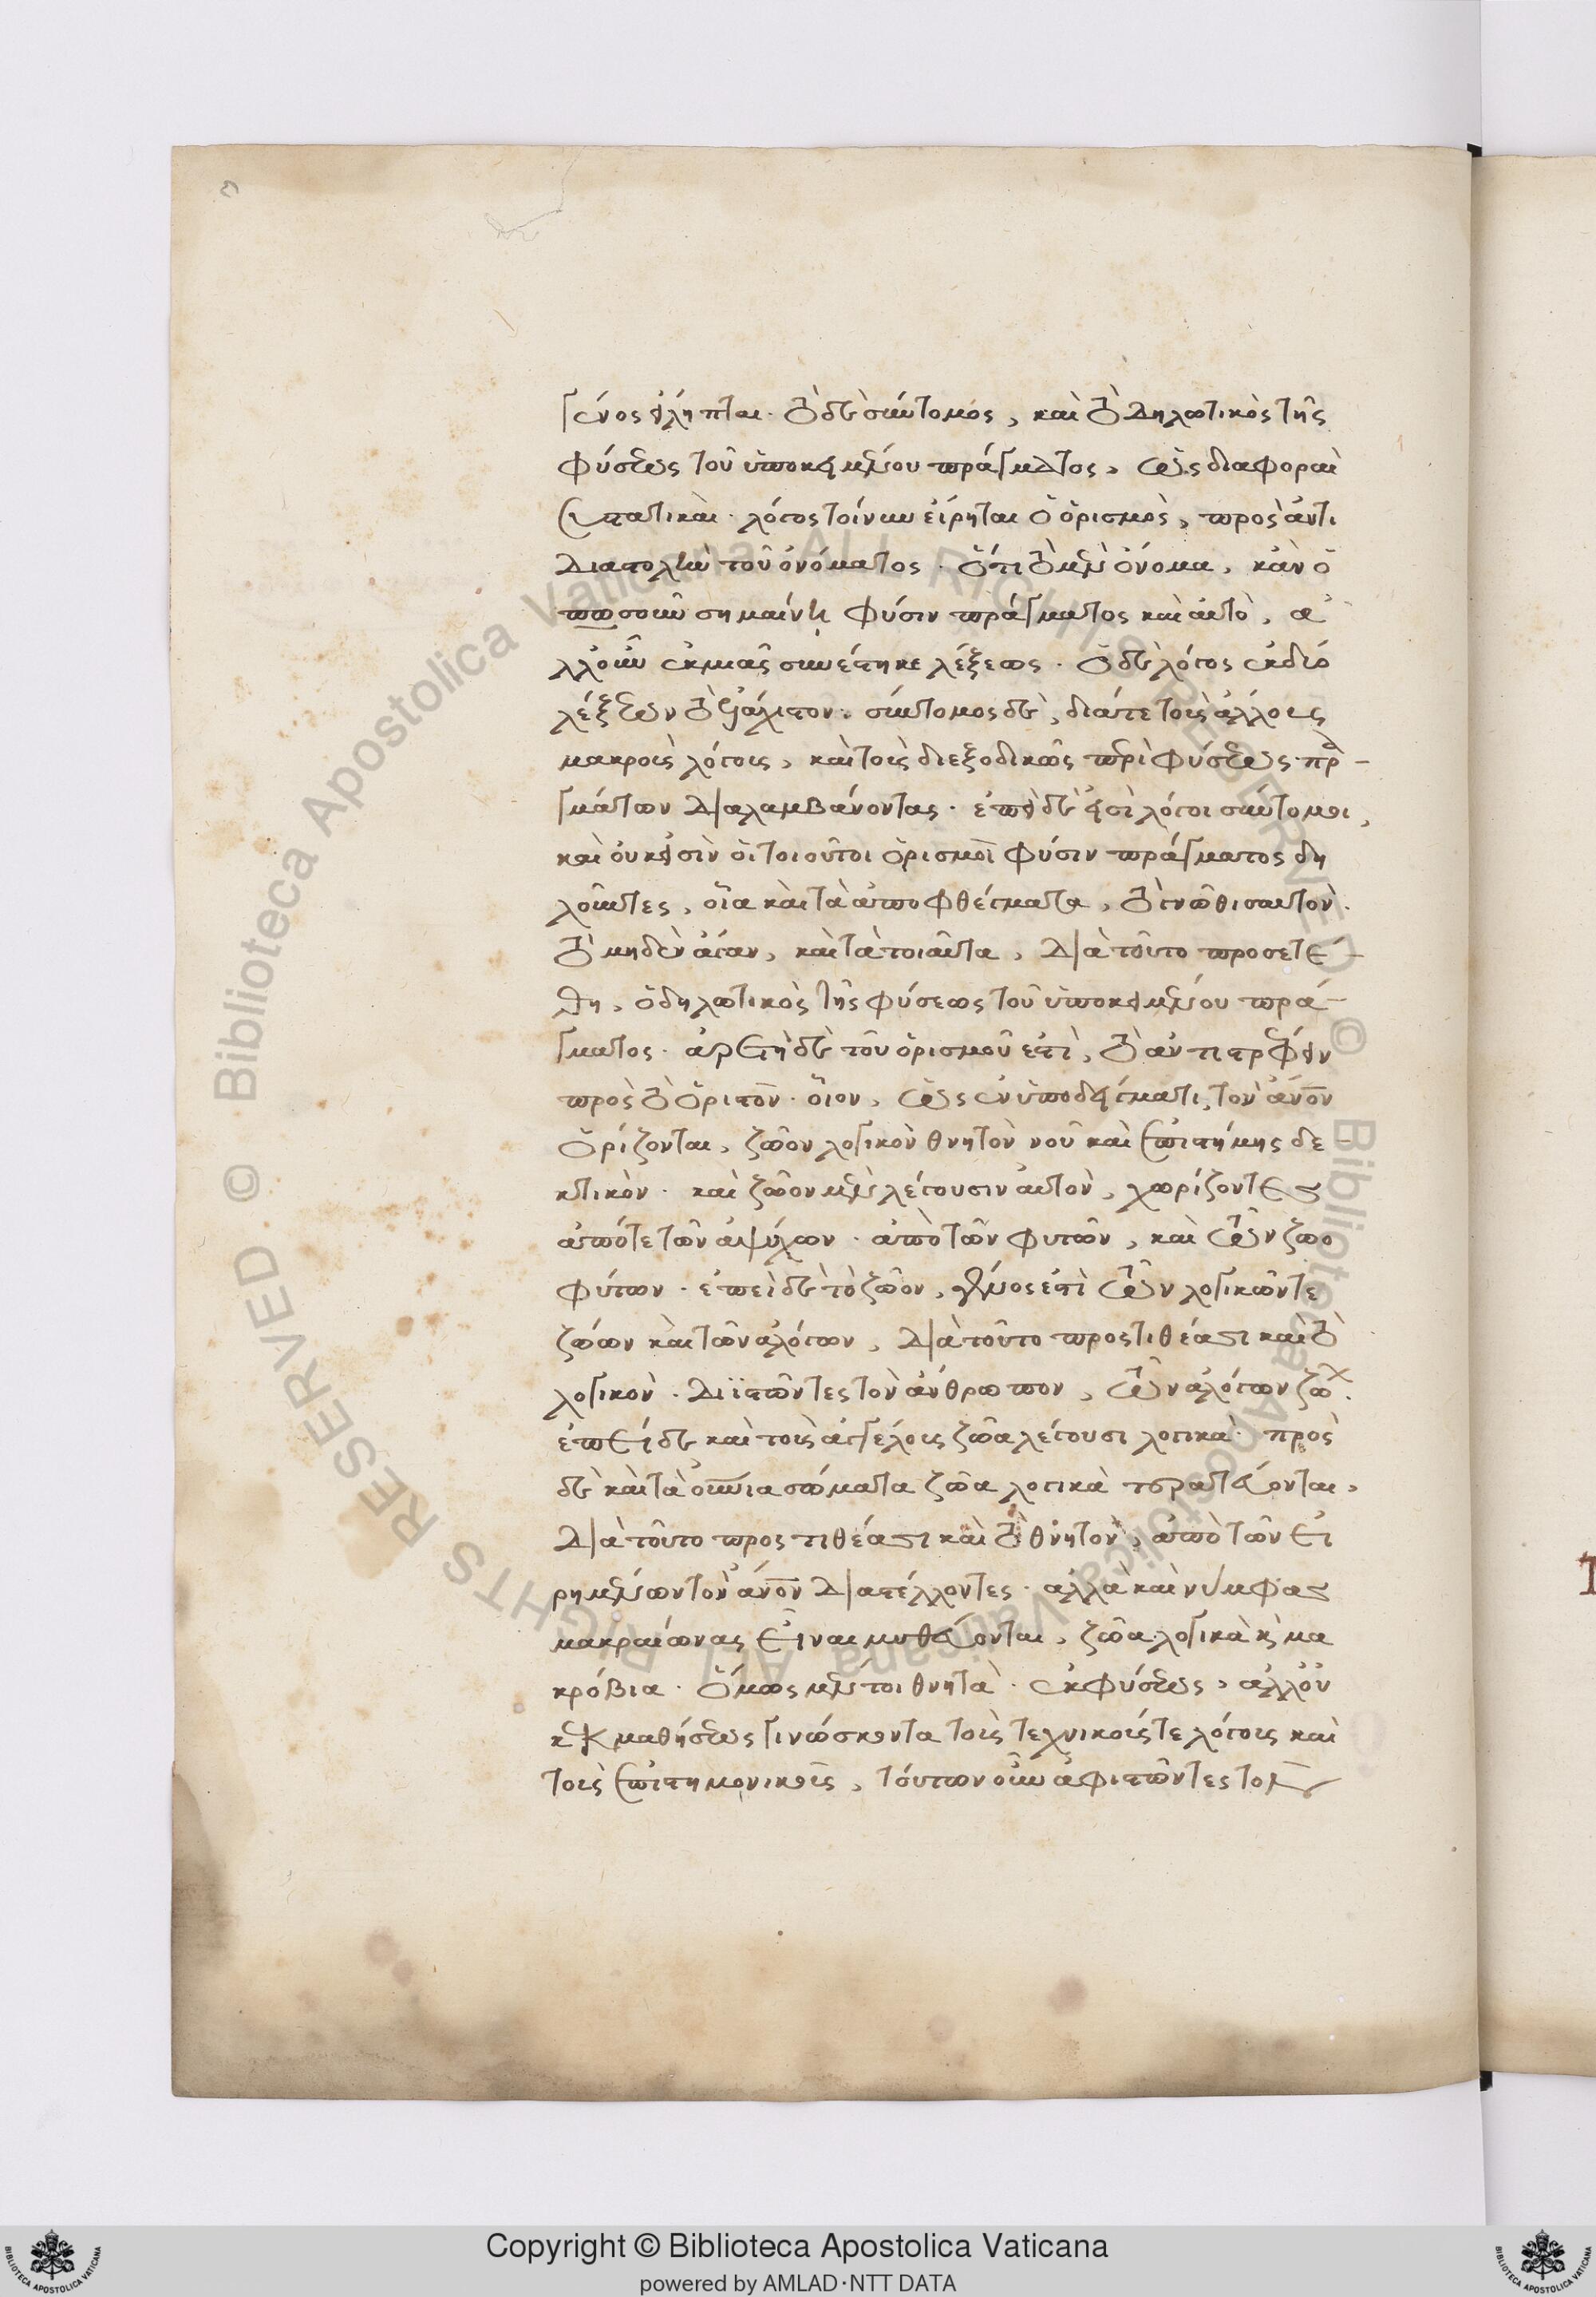 γένος εἴληπται. τὸ δὲ σύντομος, καὶ τὸ δηλωτικὸς τῆς
φύσεως τοῦ ὑποκειμένου πράγματος, ὡς διαφοραὶ
συστατικαὶ. λόγος τοίνυν εἴρηται ὁ ὁρισμὸς, πρὸς ἀντι
διαστολὴν τοῦ ὀνόματος. ὅτι τὸ μὲν ὄνομα, κἂν ὁ
πωσοῦν σημαίνη φύσιν πράγματος καὶ αὐτὸ, ἀ
λλ' οὖν ἐκ μιᾶς συνέστηκε λέξεως. ὁ δὲ λόγος ἐκ δύο
λέξεων τὸ ἐλάχιστον. σύντομος δὲ, διά τε τοὺς ἄλλους
μακροὺς λόγους, καὶ τοὺς διεξοδικῶς περὶ φύσεως πρα
γμάτων διαλαμβάνοντας. ἐπεὶ δὲ εἰσὶ λόγοι σύντομοι,
καὶ οὐκ εἰσὶν οἱ τοιοῦτοι ὁρισμοὶ φύσιν πράγματος δη
λοῦντες, οἷα καὶ τὰ ἀποφθέγματα, τὸ γνῶθι σαυτὸν.
τὸ μηδὲν ἄγαν, καὶ τὰ τοιαῦτα, διὰ τοῦτο προσετέ
θη, ὁ δηλωτικὸς τῆς φύσεως τοῦ ὑποκειμένου πρά
γματος. ἀρετὴ δὲ τοῦ ὁρισμοῦ ἐστὶ, τὸ ἀντιστρέφειν
πρὸς τὸ ὁριστὸν. οἷον, ὡς ἐν ὑποδείγματι, τὸν ἄνον
ὁρίζονται, ζῶον λογικὸν θνητὸν νοῦ καὶ ἐπιστήμης δε
κτικὸν. καὶ ζῶον μὲν λέγουσιν αὐτὸν, χωρίζοντες
ἀπό τε τῶν ἀψύχων. ἀπὸ τῶν φυτῶν, καὶ τῶν ζωο
φύτων. ἐπεὶ δὲ τὸ ζῶον, γένος ἐστὶ τῶν λογικῶν τε
ζώων καὶ τῶν ἀλόγων, διὰ τοῦτο προστιθέασι καὶ τὸ
λογικὸν. διϊστῶντες τὸν ἄνθρωπον, τῶν ἀλόγων ζώων.
ἐπεὶ δὲ καὶ τοὺς ἀγγέλους ζῶα λέγουσι λογικὰ. πρὸς
δὲ καὶ τὰ οὐράνια σώματα ζῶα λογικὰ τερατεύονται,
διὰ τοῦτο προστιθέασι καὶ τὸ θνητὸν, ἀπὸ τῶν εἰ
ρημένων τὸν ἄνον διαστέλλοντες. ἀλλὰ καὶ νύμφας
μακραίωνας εἶναι μυθεύονται, ζῶα λογικὰ κ μα
κρόβια. ὅμως μέντοι θνητὰ. ἐκ φύσεως, ἀλλ' οὐ
κ ἐκ μαθήσεως γινώσκοντα τοῖς τεχνικοῖς τε λόγοις καὶ
τοῖς ἐπιστημονικοῖς, τούτων οὖν ἀφιστῶντες τὸν
Copyright © Biblioteca Apostolica Vaticana
powered by AMLAD·NTT DATA